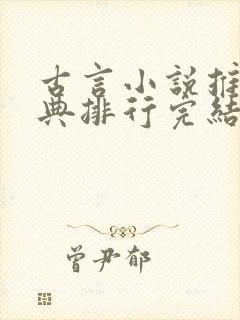 古言小说推
典排行完结
曾尹郁